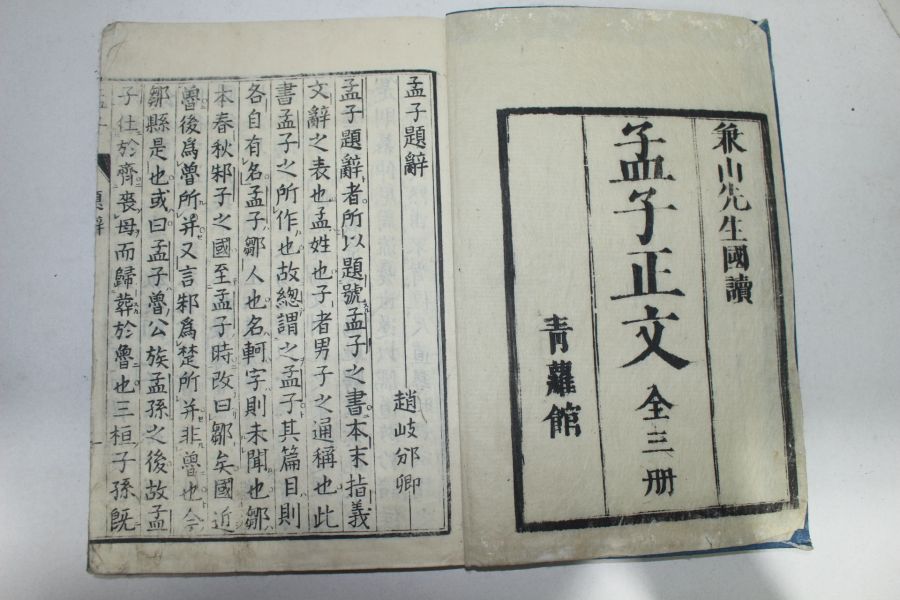 兼山先生國讀
孟子正文 全三册
青蘿館
孟子題辭
趙岐邠卿
孟子題辭者所以題號孟子之書本末指義
文辭之表也孟姓也子者男子之通稱也此
書孟子之所作也故總謂之孟子其篇目則
各自有名孟子鄒人也名軻字則未聞也鄒
本春秋邾子之國至孟子時改曰鄒矣國近
魯後爲魯所并又言邾爲楚所并非魯也今
鄒縣是也或曰孟子魯公族孟孫之後故孟
子仕於齊喪母而歸葬於魯也三桓子孫既